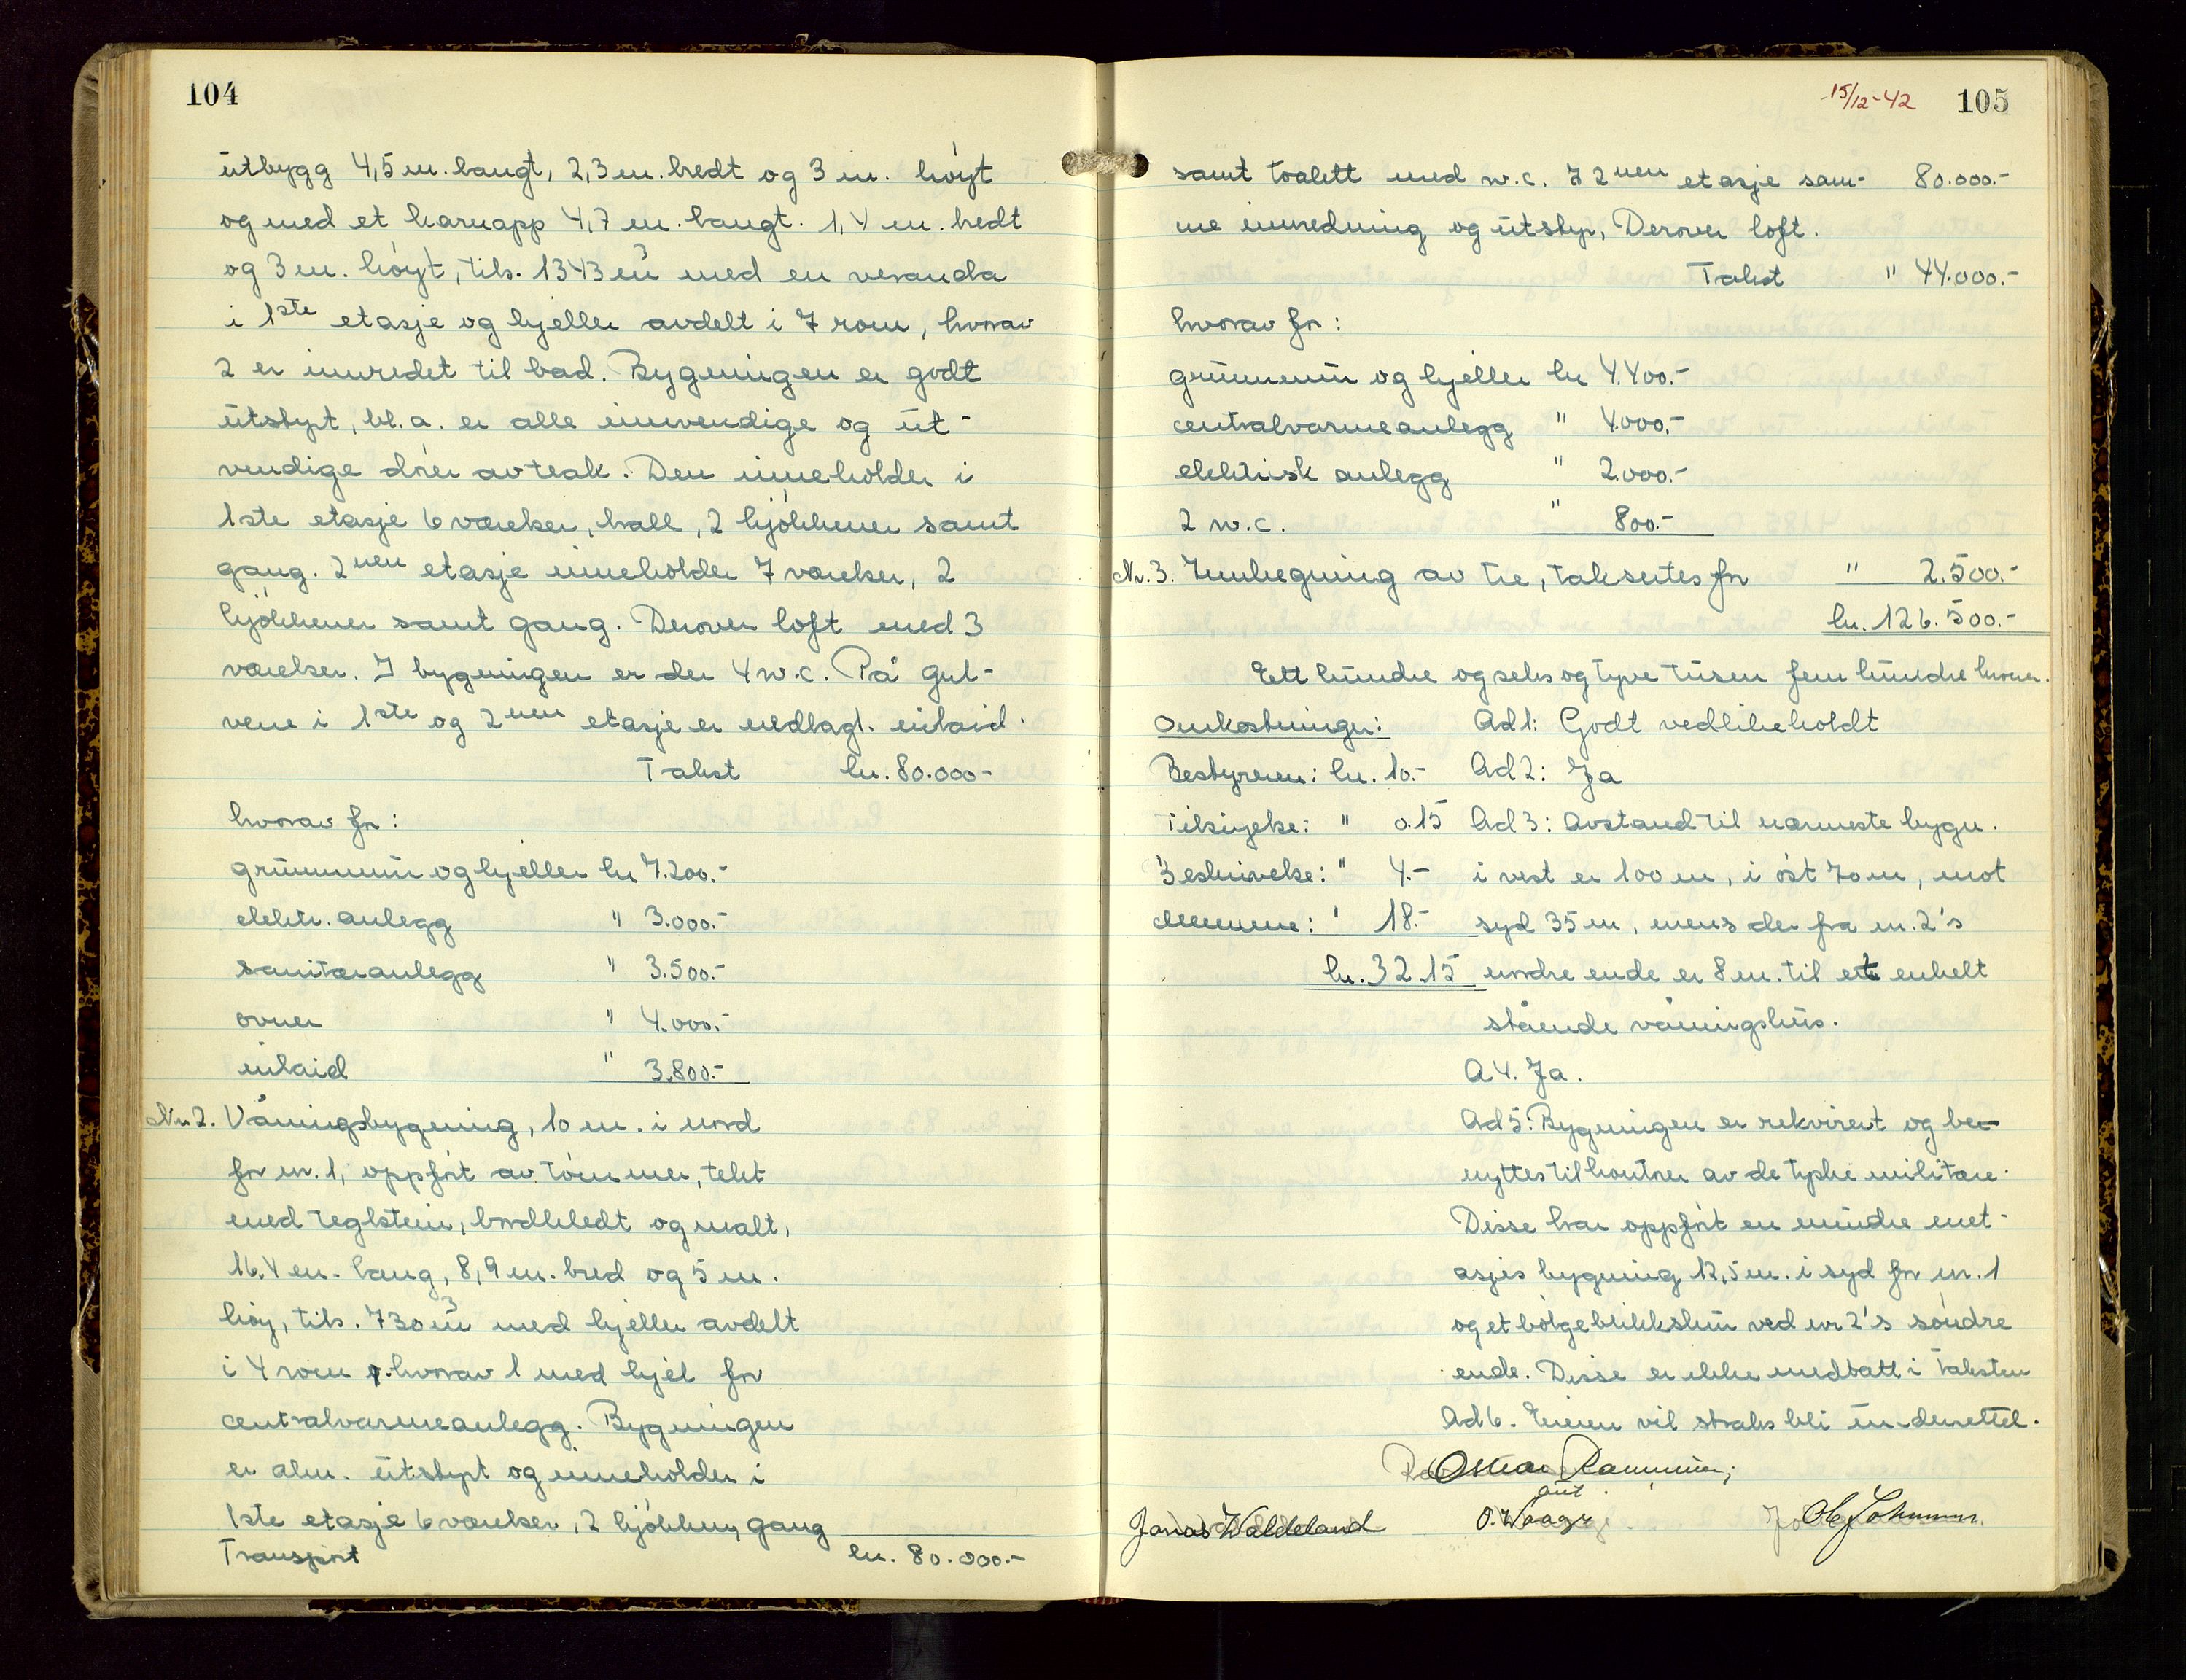 104
utbygg 4,5 m. langt, 2,3 m. bredt og 3 m. høyt
og med et karnapp 4,7 m. langt. 1,4 m. bredt
og 3 m. høyt, tils. 1343 m³ med en veranda
i 1ste etasje og kjeller avdelt i 7 rom, hvorav
2 er innredet til bad. Bygningen er godt
utstyrt, bl. a. er alle innvendige og ut-
vendige dører av teak. Den inneholder i
1ste etasje 6 værelser, hall, 2 kjøkkener samt
gang. 2nen etasje inneholder 7 værelser, 2
kjøkkener samt gang. Derover loft med 3
værelser. I bygningen er der 4 w.c. På gul-
vene i 1ste og 2nen etasje er nedlagt inlaid.
Takst kr. 80.000-
hvorav for:
grunnmur og kjeller kr 7.200.-
elektr. anlegg " 3.000.-
sanitæranlegg " 3.500.-
ovner " 4.000.-
inlaid " 3.800.-
Nr. 2. Våningsbygning, 10 m. i nord
for nr. 1, oppført av tømmer, tekt
med teglstein, bordkledt og malt,
16,4 m. lang, 8,9 m. bred og 5 m.
høy, tils. 730 m³ med kjeller avdelt
i 4 rom hvorav 1 med kjel for
centralvarmeanlegg. Bygningen
er alm. utstyrt og inneholder i
1ste etasje 6 værelser, 2 kjøkken, gang
Transport kr. 80.000.-
15/12-42 105
samt toalett med w.c. I 2nen etasje sam- 80.000.-
me innredning og utstyr, Derover loft.
Takst " 44.000.-
hvorav for:
grunnmur og kjeller kr 4.400.-
centralvarmeanlegg " 4.000.-
elektrisk anlegg " 2.000.-
2 w.c. " 800.-
Nr. 3. Innhegning av tre, takseres for " 2.500.-
kr. 126.500.-
Ett hundre og seks og tyve tusen fem hundre kroner.
Omkostninger: Ad 1: Godt vedlikeholdt
Bestyreren: kr. 10.- Ad 2: Ja
Tilsigelse: " 0.15 Ad 3: Avstand til nærmeste bygn.
Beskrivelse: " 4.- i vest er 100 m, i øst 70 m, mot
Mennene: " 18.- syd 35 m, mens der fra nr. 2's
kr. 32.15 nordre ende er 8 m. til et enkelt
stående våningshus.
A 4. Ja.
Ad 5: Bygningen er rekvirert og be-
nyttes til kontor av de tyske militære.
Disse har oppført en mindre enet-
asjes bygning 12,5 m. i syd for nr. 1
og et bølgeblikkskur ved nr 2's søndre
ende. Disse er ikke medtatt i taksten
Ad 6. Eieren vil straks bli underrettet.
Oskar
Jonas Waldeland O. Waage Ole Johnsen